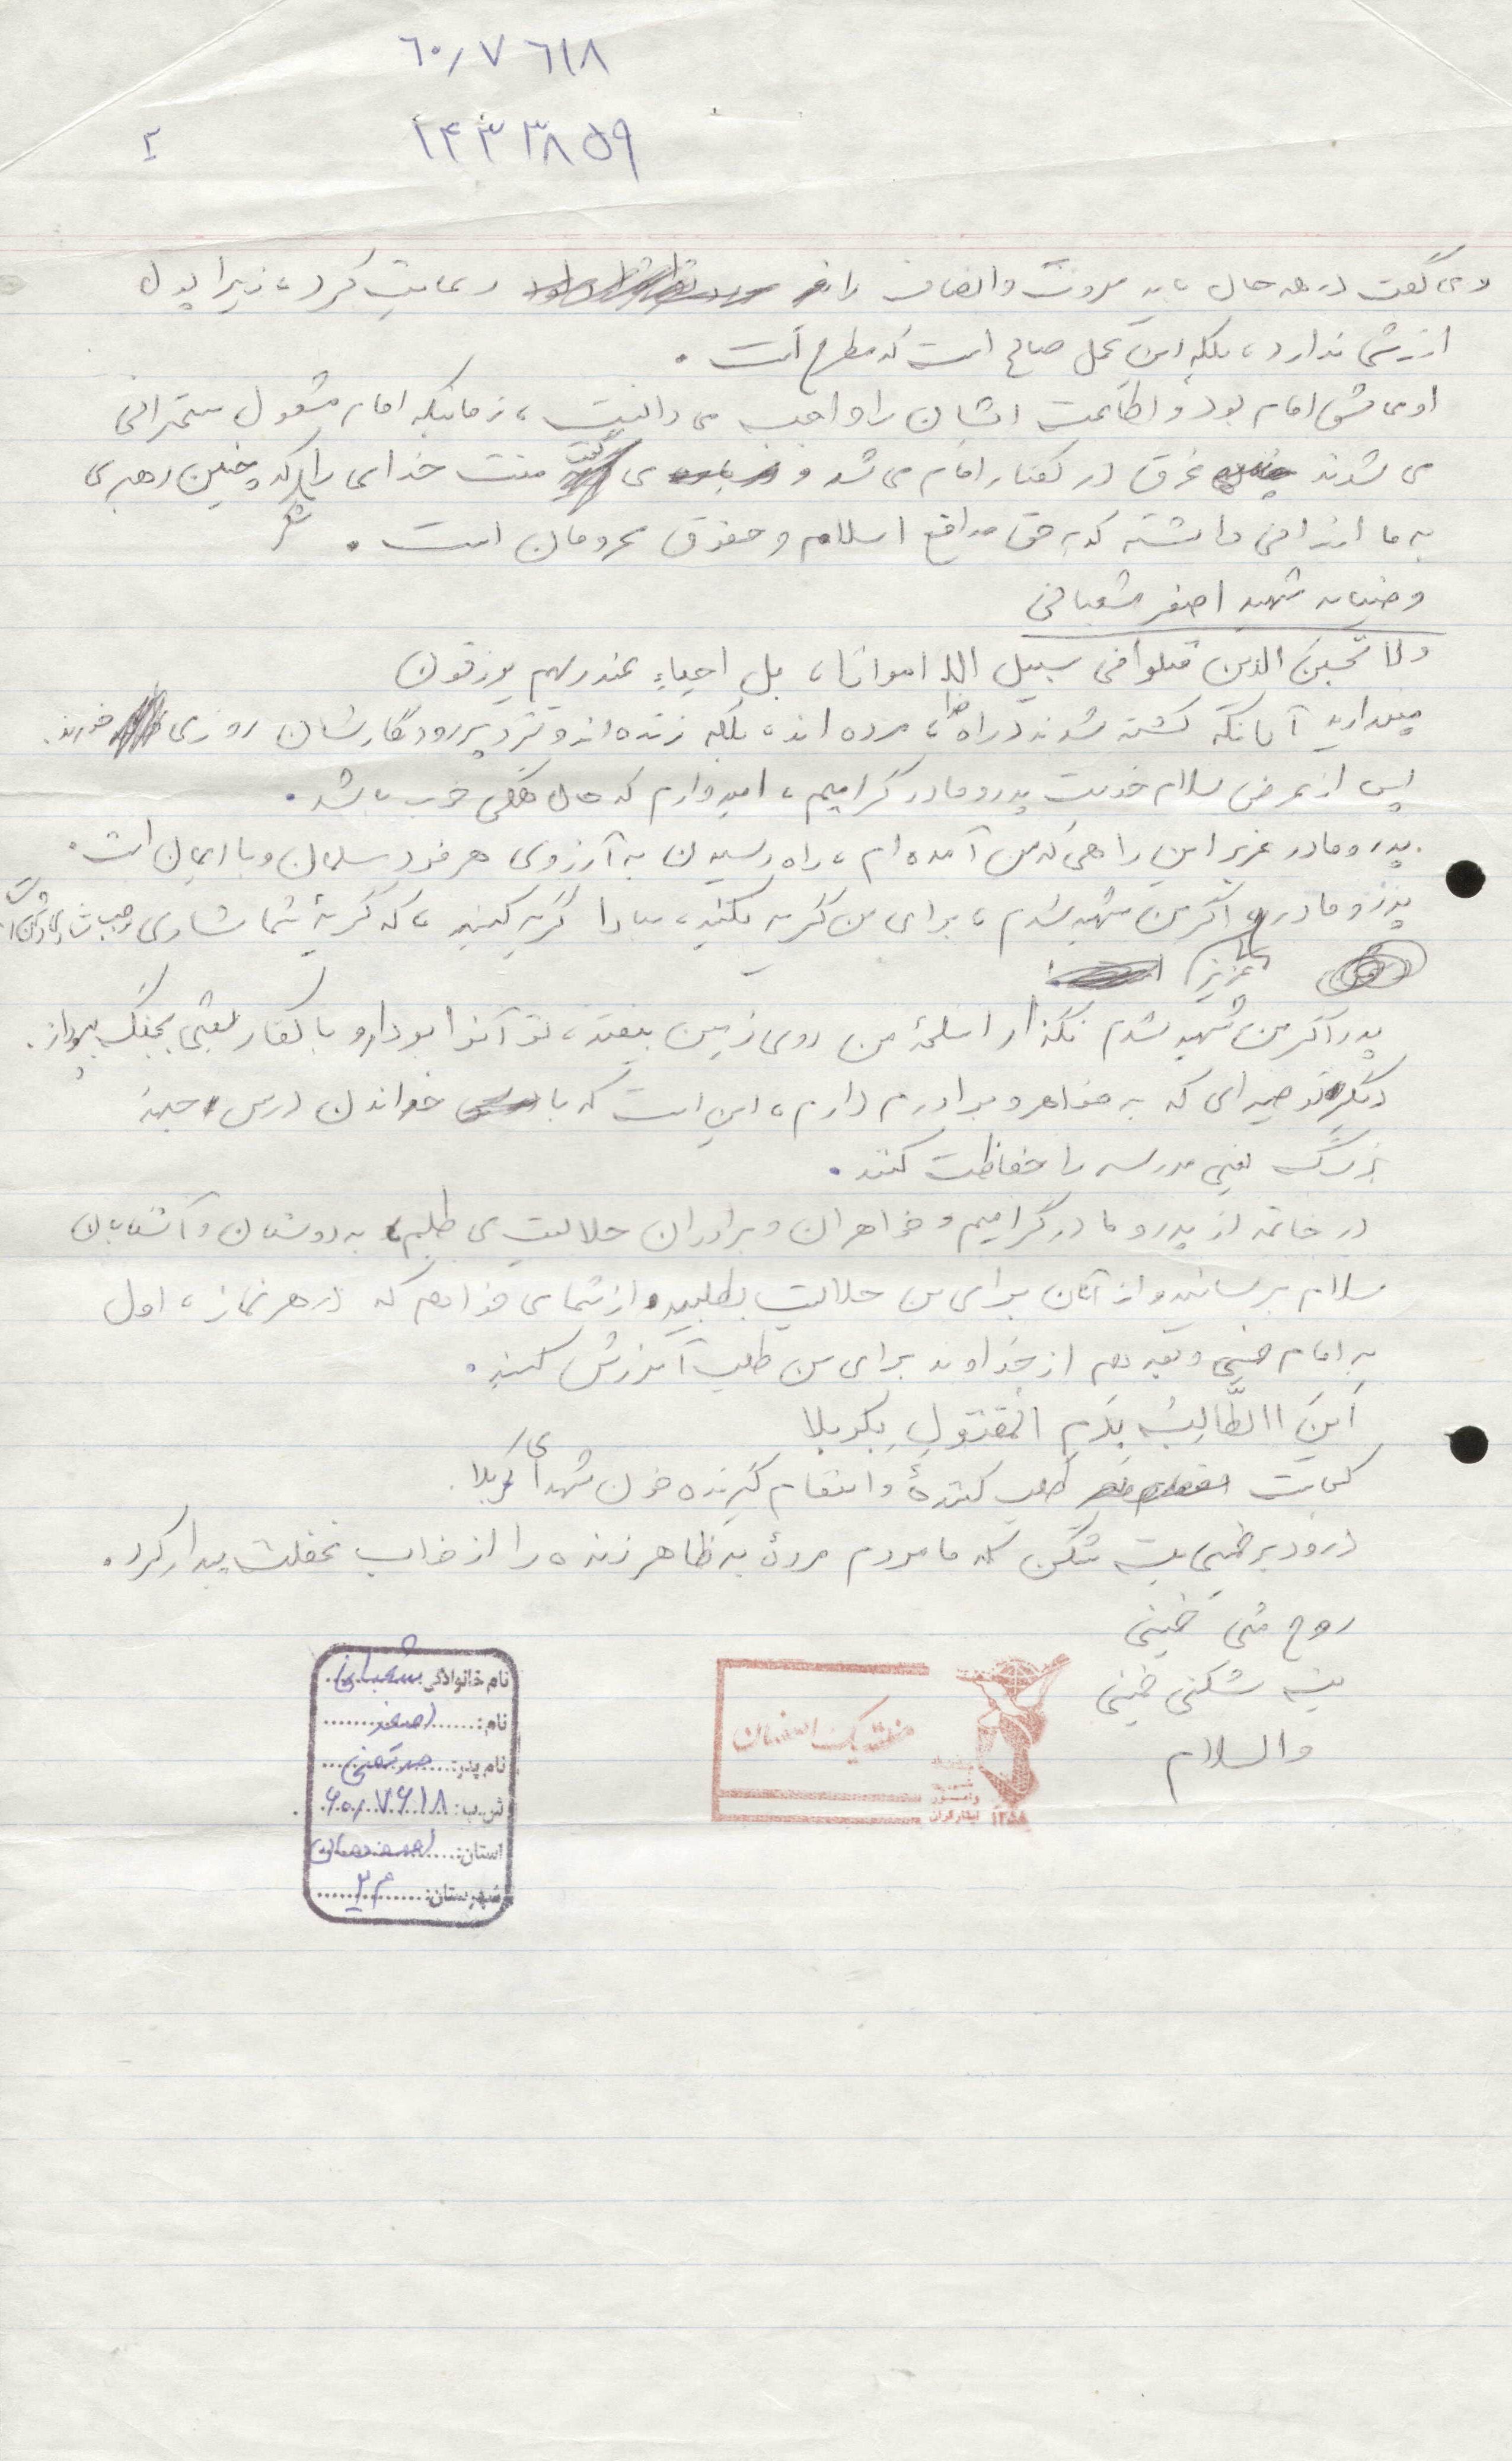 ۶۰/۷۶۱۸
۱۴۳۳۸۵۹
۲
می گفت در همه حال باید مروت و انصاف را رعایت کرد، زیرا پول
ارزشی ندارد، بلکه این عمل صالح است که مطرح است.
او عاشق امام بود و اطاعت ایشان را واجب می دانست، زمانیکه امام مشغول سخنرانی
می شدند غرق در گفتار امام می شد و می گفت منت خدای را شکر که چنین رهبری
به ما ارزانی داشته که به حق مدافع اسلام و حقوق محرومان است.
وصیتنامه شهید اصغر شعبانی
ولا تحسبن الذین قتلوا فی سبیل الله امواتا، بل احیاء عند ربهم یرزقون
مپندارید آنانکه کشته شدند در راه خدا، مرده اند، بلکه زنده اند و نزد پروردگارشان روزی خورند.
پس از عرض سلام خدمت پدر و مادر گرامیم، امیدوارم که حال همگی خوب باشد.
پدر و مادر عزیز این راهی که من آمده ام، راه رسیدن به آرزوی هر فرد مسلمان و با ایمان است.
پدر و مادر عزیز اگر من شهید شدم، برای من گریه نکنید، مبادا گریه کنید، که گریهٔ شما شادی
پدر اگر من شهید شدم نگذار اسلحهٔ من روی زمین بیفتد، تو آنرا بردار و با کفار بعثی بجنگ بپرداز.
دیگر توصیه ای که به خواهر و برادرم دارم، این است که با خواندن درس، جبهه
بزرگ یعنی مدرسه را حفاظت کنند.
در خاتمه از پدر و مادر گرامیم و خواهران و برادران حلالیت می طلبم، به دوستان و آشنایان
سلام برسانید و از آنان برای من حلالیت بطلبید، از شما می خواهم که در هر نماز، اول
به امام خمینی و بعد هم از خداوند برای من طلب آمرزش کنید.
اَینَ االطّالِبُ بِدَمِ المَقتولِ بِکربلا
کجاست طلب کنندهٔ و انتقام گیرنده خون شهدای کربلا.
درود بر خمینی بت شکن که ما مردم مردهٔ به ظاهر زنده را از خواب غفلت بیدار کرد.
روح منی خمینی
بت شکنی خمینی
والسلام
نام خانوادگی شعبانی
نام: اصغر
نام پدر: مرتضی
ش.ب: ۶۰/۷۶۱۸
استان: اصفهان
شهرستان: م ۲
منطقه یک اصفهان
۱۳۵۸